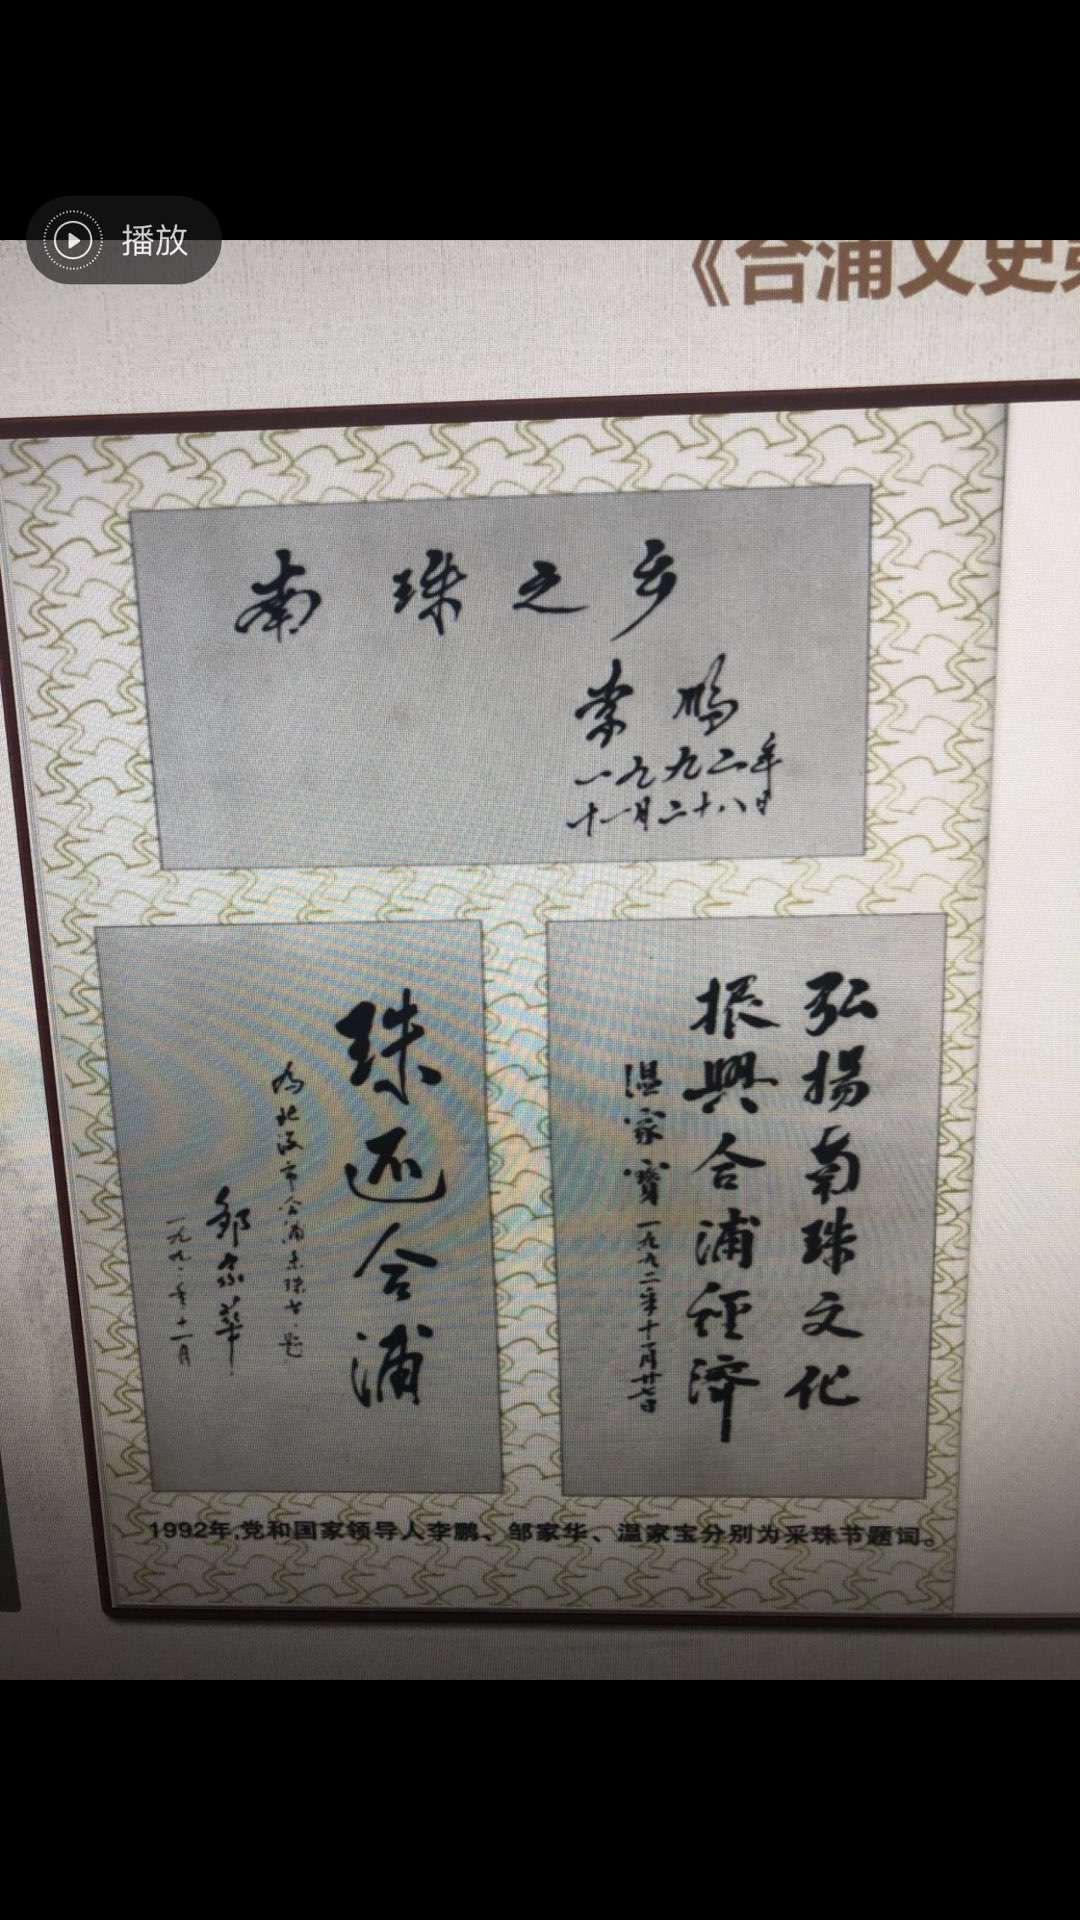 播放
《合浦文史
南珠之乡
李鹏
一九九二年
十一月二十八日
弘揚南珠文化
振興合浦經濟
温家寳 一九九二年十一月廿七日
珠还合浦
为北海市合浦采珠节题
邹家华
年十一月
1992年,党和国家领导人李鹏、邹家华、温家宝分别为采珠节题词。